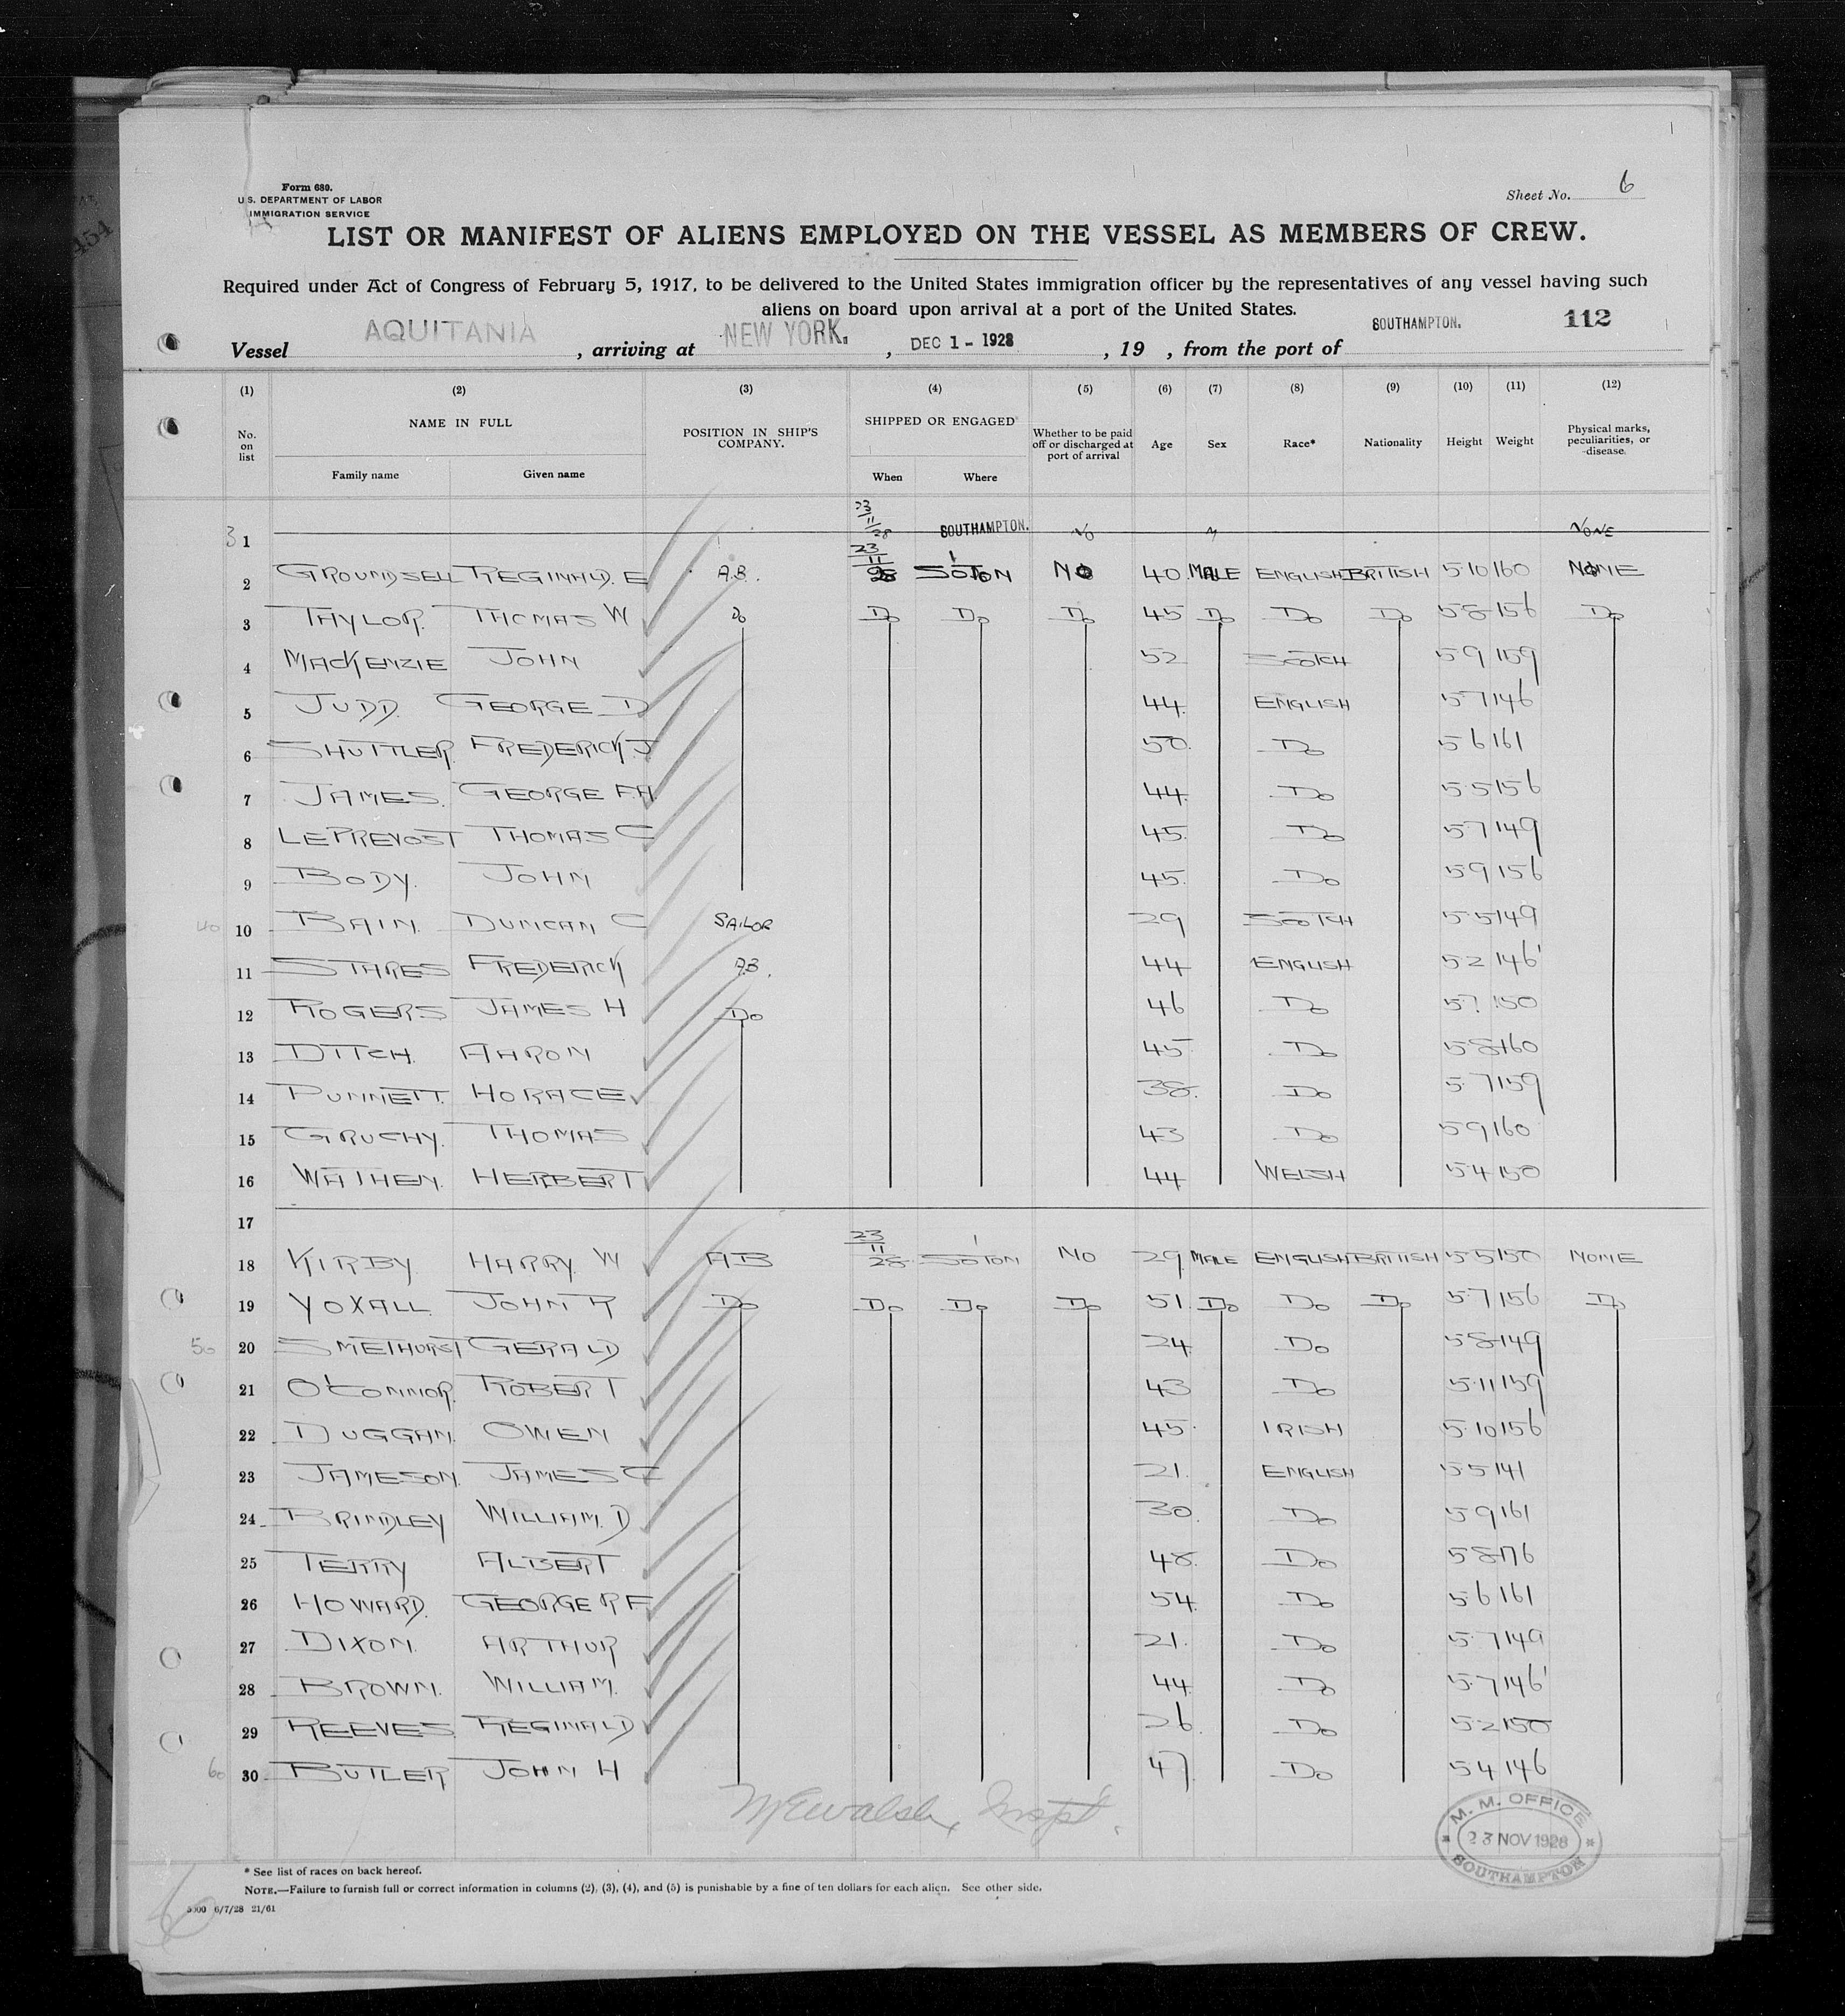 Form 680.
U.S. DEPARTMENT OF LABOR
IMMIGRATION SERVICE
Sheet No. 6
LIST OR MANIFEST OF ALIENS EMPLOYED ON THE VESSEL AS MEMBERS OF CREW.
Required under Act of Congress of February 5, 1917, to be delivered to the United States immigration officer by the representatives of any vessel having such
aliens on board upon arrival at a port of the United States.
112
Vessel AQUITANIA, arriving at NEW YORK., DEC 1 - 1928, 19 , from the port of SOUTHAMPTON.
(1) (2) (3) (4) (5) (6) (7) (8) (9) (10) (11) (12)
No. on list NAME IN FULL POSITION IN SHIP'S COMPANY. SHIPPED OR ENGAGED Whether to be paid off or discharged at port of arrival Age Sex Race* Nationality Height Weight Physical marks, peculiarities, or disease.
Family name Given name When Where
1 23/11/28 SOUTHAMPTON. No M NONE
2 GROUNDSELL REGINALD. E A.B. 23/11/28 SO'TON NO 40 MALE ENGLISH BRITISH 5.10 160 NONE
3 TAYLOR. THOMAS W Do Do Do Do 45 Do Do Do 5.8 156 Do
4 MACKENZIE JOHN 52 SCOTCH 5.9 159
5 JUDD. GEORGE D 44. ENGLISH 5.7 146
6 SHUTTLER FREDERICK J 50. Do 5.6 161
7 JAMES. GEORGE F.A. 44. Do 5.5 156
8 LEPREVOST THOMAS C 45. Do 5.7 149
9 BODY. JOHN 45. Do 5.9 156
40 10 BAIN. DUNCAN C SAILOR 29 SCOTCH 5.5 149
11 STARES FREDERICK A.B. 44 ENGLISH 5.2 146
12 ROGERS JAMES H Do 46 Do 5.7. 150
13 DITCH. AARON 45. Do 5.8 160
14 PUNNETT. HORACE 38. Do 5.7 159
15 GRUCHY. THOMAS 43 Do 5.9 160
16 WATHEN. HERBERT 44 WELSH 5.4 150
17
18 KIRBY HARRY. W AB 23/11/28 SO'TON NO 29 MALE ENGLISH BRITISH 5.5 150 NONE
19 YOXALL JOHN R Do Do Do Do 51. Do Do Do 5.7 156 Do
50 20 SMETHURST GERALD 24 Do 5.8 149
21 O'CONNOR. ROBERT 43 Do 5.11 159
22 DUGGAN. OWEN 45. IRISH 5.10 156
23 JAMESON. JAMES 21. ENGLISH 5.5 141
24 BRINDLEY WILLIAM. D 30. Do 5.9 161
25 TERRY ALBERT 48. Do 5.8 176
26 HOWARD. GEORGE R F 54. Do 5.6 161
27 DIXON. ARTHUR 21. Do 5.7 149
28 BROWN. WILLIAM. 44. Do 5.7 146
29 REEVES. REGINALD 26. Do 5.2 150
60 30 BUTLER JOHN H 47. Do 5.4 146
Walsh, Inspt.
M. M. OFFICE
23 NOV 1928
SOUTHAMPTON
* See list of races on back hereof.
NOTE.—Failure to furnish full or correct information in columns (2), (3), (4), and (5) is punishable by a fine of ten dollars for each alien. See other side.
6/7/28 21/61